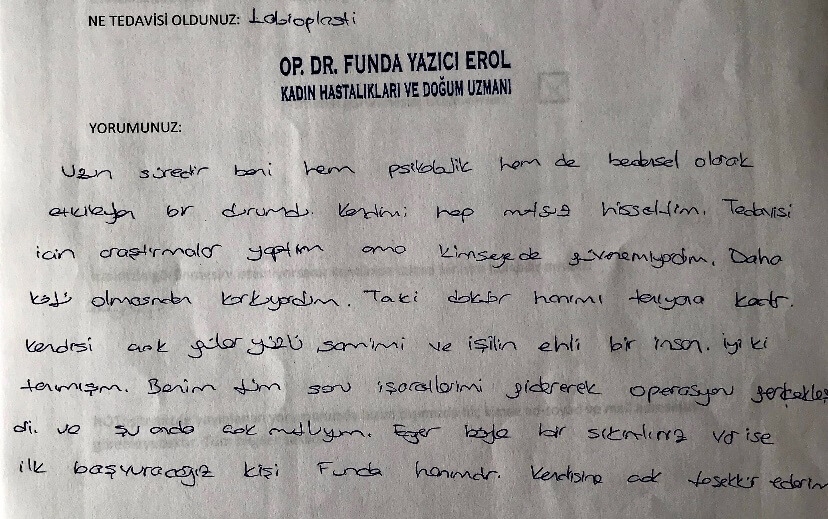 NE TEDAVİSİ OLDUNUZ: Labioplasti
OP. DR. FUNDA YAZICI EROL
KADIN HASTALIKLARI VE DOĞUM UZMANI
YORUMUNUZ:
Uzun süredir beni hem psikolojik hem de bedensel olarak
etkileyen bir durumdu. Kendimi hep mutsuz hissettim. Tedavisi
için araştırmalar yaptım ama kimseye de güvenemiyordum. Daha
kötü olmasından korkuyordum. Taki doktor hanımı tanıyana kadar.
Kendisi çok güler yüzlü samimi ve işinin ehli bir insan. iyi ki
tanımışım. Benim tüm soru işaretlerimi gidererek operasyon gerçekleş
di. ve şu anda çok mutluyum. Eğer böyle bir sıkıntınız var ise
ilk başvuracağız kişi Funda hanımdır. Kendisine çok teşekkür ederim